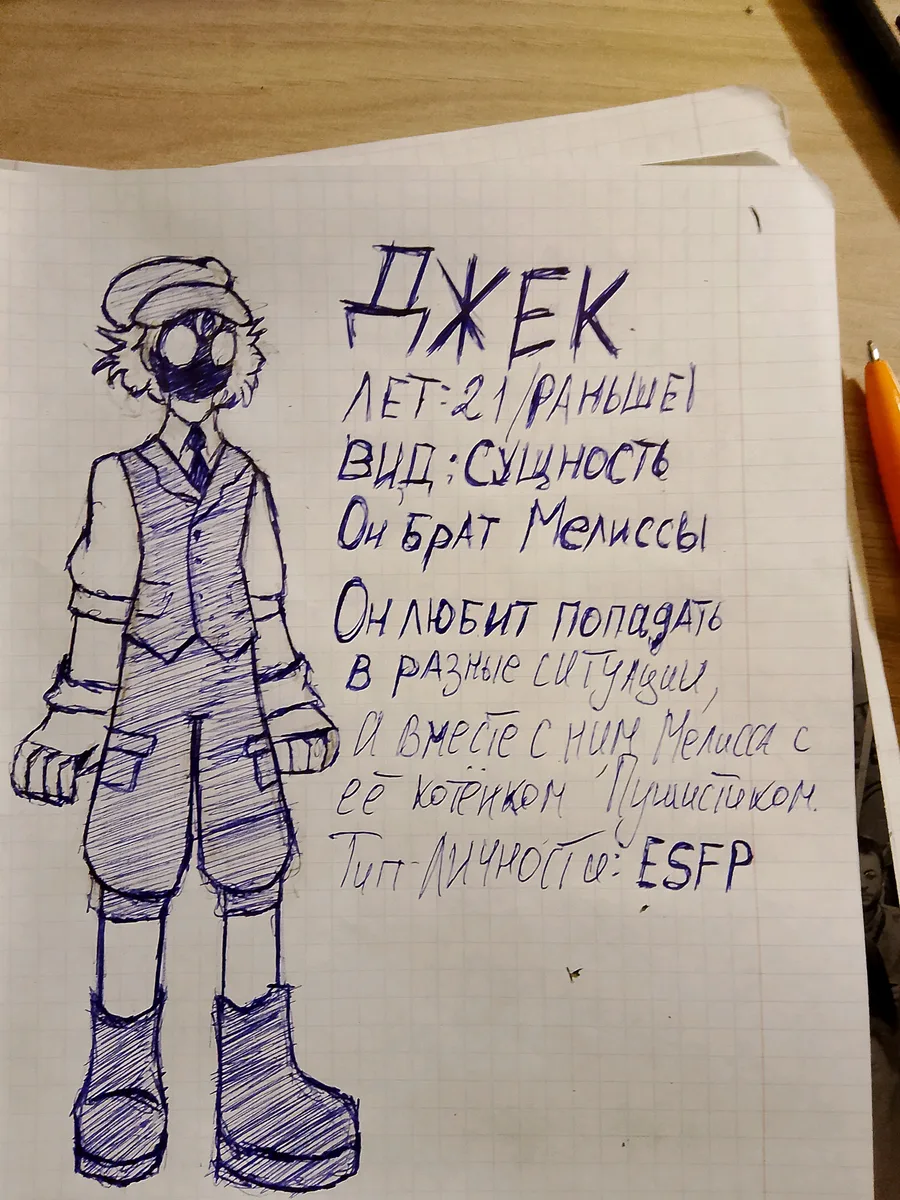 ДЖЕК
ЛЕТ: 21 /РАНЬШЕ/
ВИД: СУЩНОСТЬ
Он брат Мелиссы
Он любит попадать
в разные ситуации,
А вместе с ним Мелисса с
её котёнком Пушистиком.
Тип-личности: ESFP